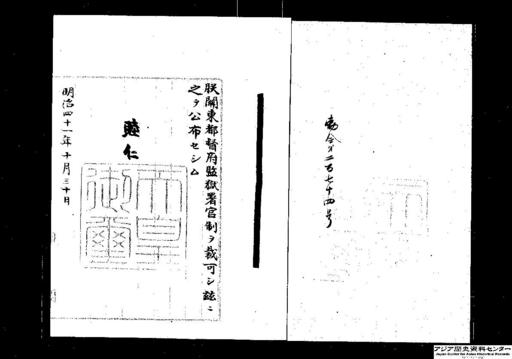 勅令第二百七十四号
朕關東都督府監獄署官制ヲ裁可シ茲ニ
之ヲ公布セシム
睦仁
天皇御璽
明治四十一年十月三十日
アジア歴史資料センター
Japan Center for Asian Historical Records